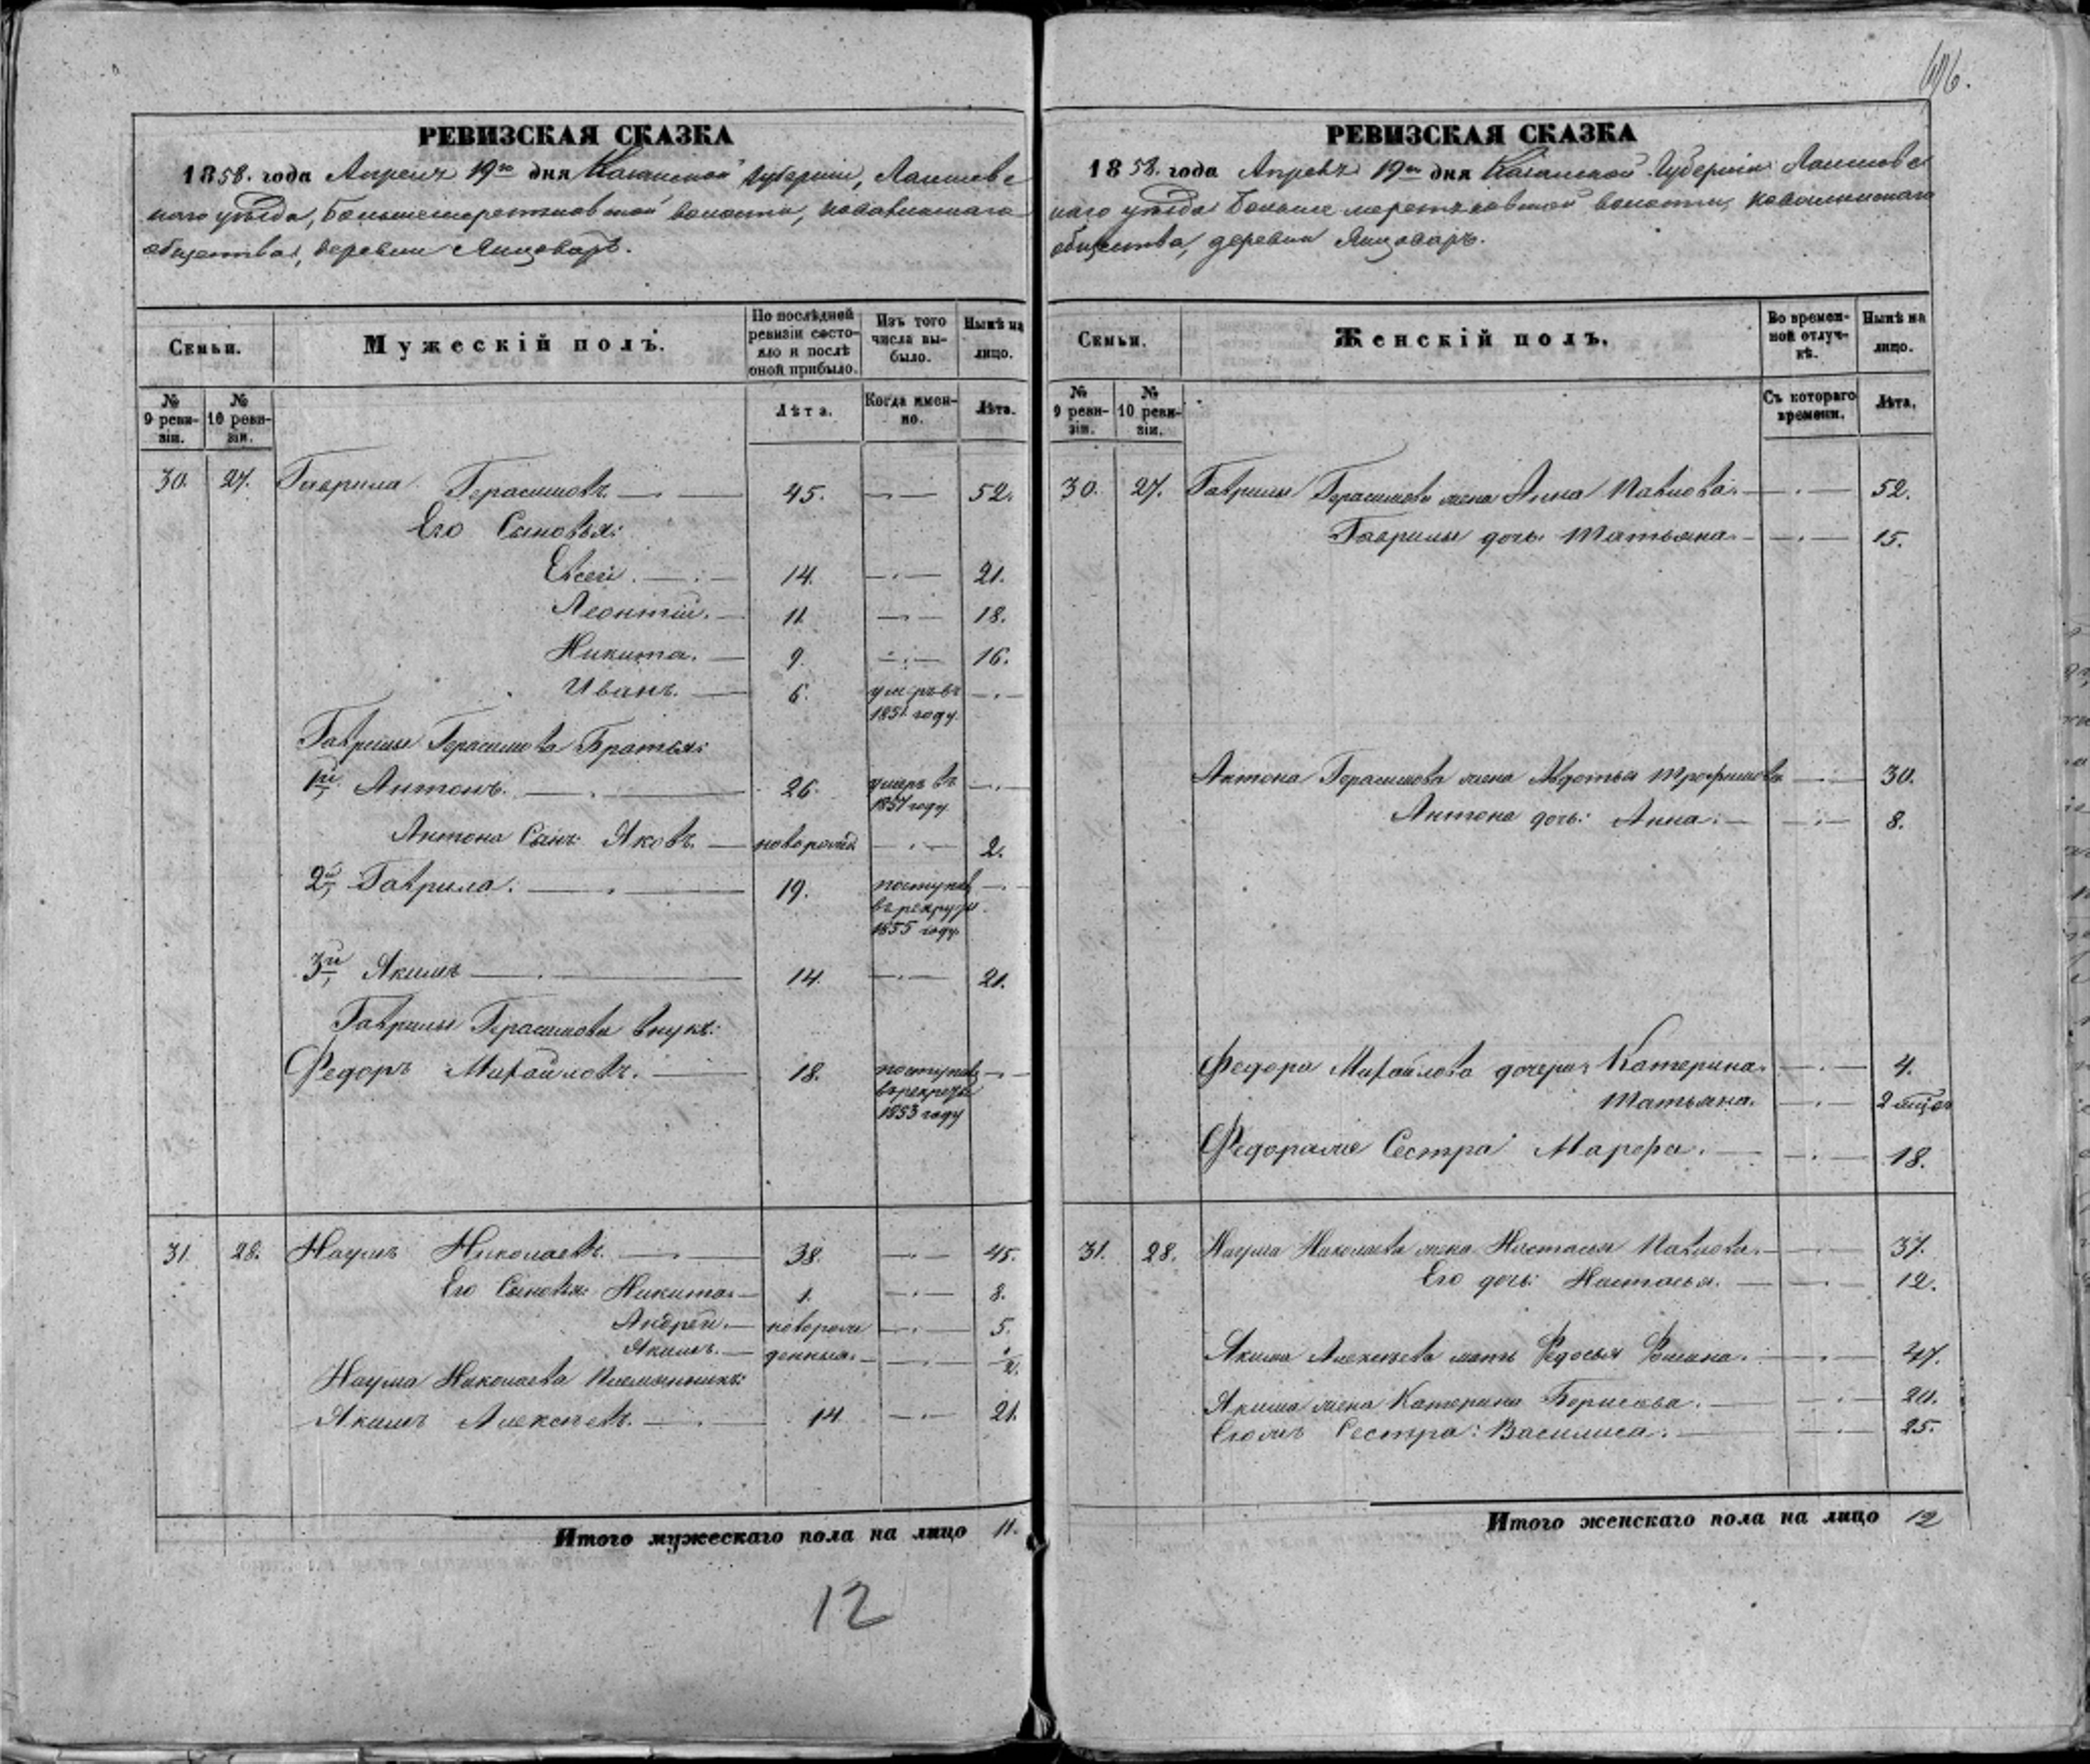 696.
РЕВИЗСКАЯ СКАЗКА
1858. года Апреля 19го дня Казанской Губернии, Лаишевс
каго уѣзда, волости,
общества, деревни Янцоваръ.
Семьи.
Мужескій полъ.
По послѣдней ревизіи состояло и послѣ оной прибыло.
Изъ того числа выбыло.
Нынѣ на лицо.
№ 9 ревизіи.
№ 10 ревизіи.
Лѣта.
Когда именно.
Лѣта.
30. 27. Гаврила Герасимовъ. 45. 52.
Его Сыновья:
Евсей. 14. 21.
Леонтій. 11. 18.
Никита. 9. 16.
Иванъ. 6. умеръ въ
1851 году.
Гаврилы Герасимова Братья:
1й Антонъ. 26. умеръ въ
1857 году
Антона Сынъ: Яковъ. новорожд. 2.
2й Гаврила. 19. поступил
въ рекруты
1855 году.
3й Якимъ 14. 21.
Гаврилы Герасимова внукъ:
Федоръ Михайловъ. 18. поступил
въ рекруты
1853 году
31. 28. Наумъ Николаевъ. 38. 45.
Его Сыновья: Никита. 1. 8.
Андрей. новорож 5.
Якимъ. денныя.
Наума Николаева Племянникъ:
Якимъ Алексѣевъ. 14 21.
Итого мужескаго пола на лицо 11.
12
РЕВИЗСКАЯ СКАЗКА
1858. года Апреля 19го дня Казанской Губерніи Лаишевс
каго уѣзда волости,
общества, деревни Янцоваръ.
Семьи.
Женскій полъ.
Во временной отлучкѣ.
Нынѣ на лицо.
№ 9 ревизіи.
№ 10 ревизіи.
Съ котораго времени.
Лѣта.
30. 27. Гаврилы Герасимова жена Анна Павлова. 52.
Гаврилы дочь Татьяна. 15.
Антона Герасимова жена Авдотья Трофимова 30.
Антона дочь: Анна: 8.
Федора Михайлова дочери: Катерина. 4.
Татьяна. 2
Федора же Сестра Марфа. 18.
31. 28. Наума Николаева жена Настасья Павлова. 37.
Его дочь: Настасья. 12.
Якима Алексѣева мать Федосья 47.
Якима жена Катерина Борисова. 20.
Его жъ Сестра: Василиса. 25.
Итого женскаго пола на лицо 12